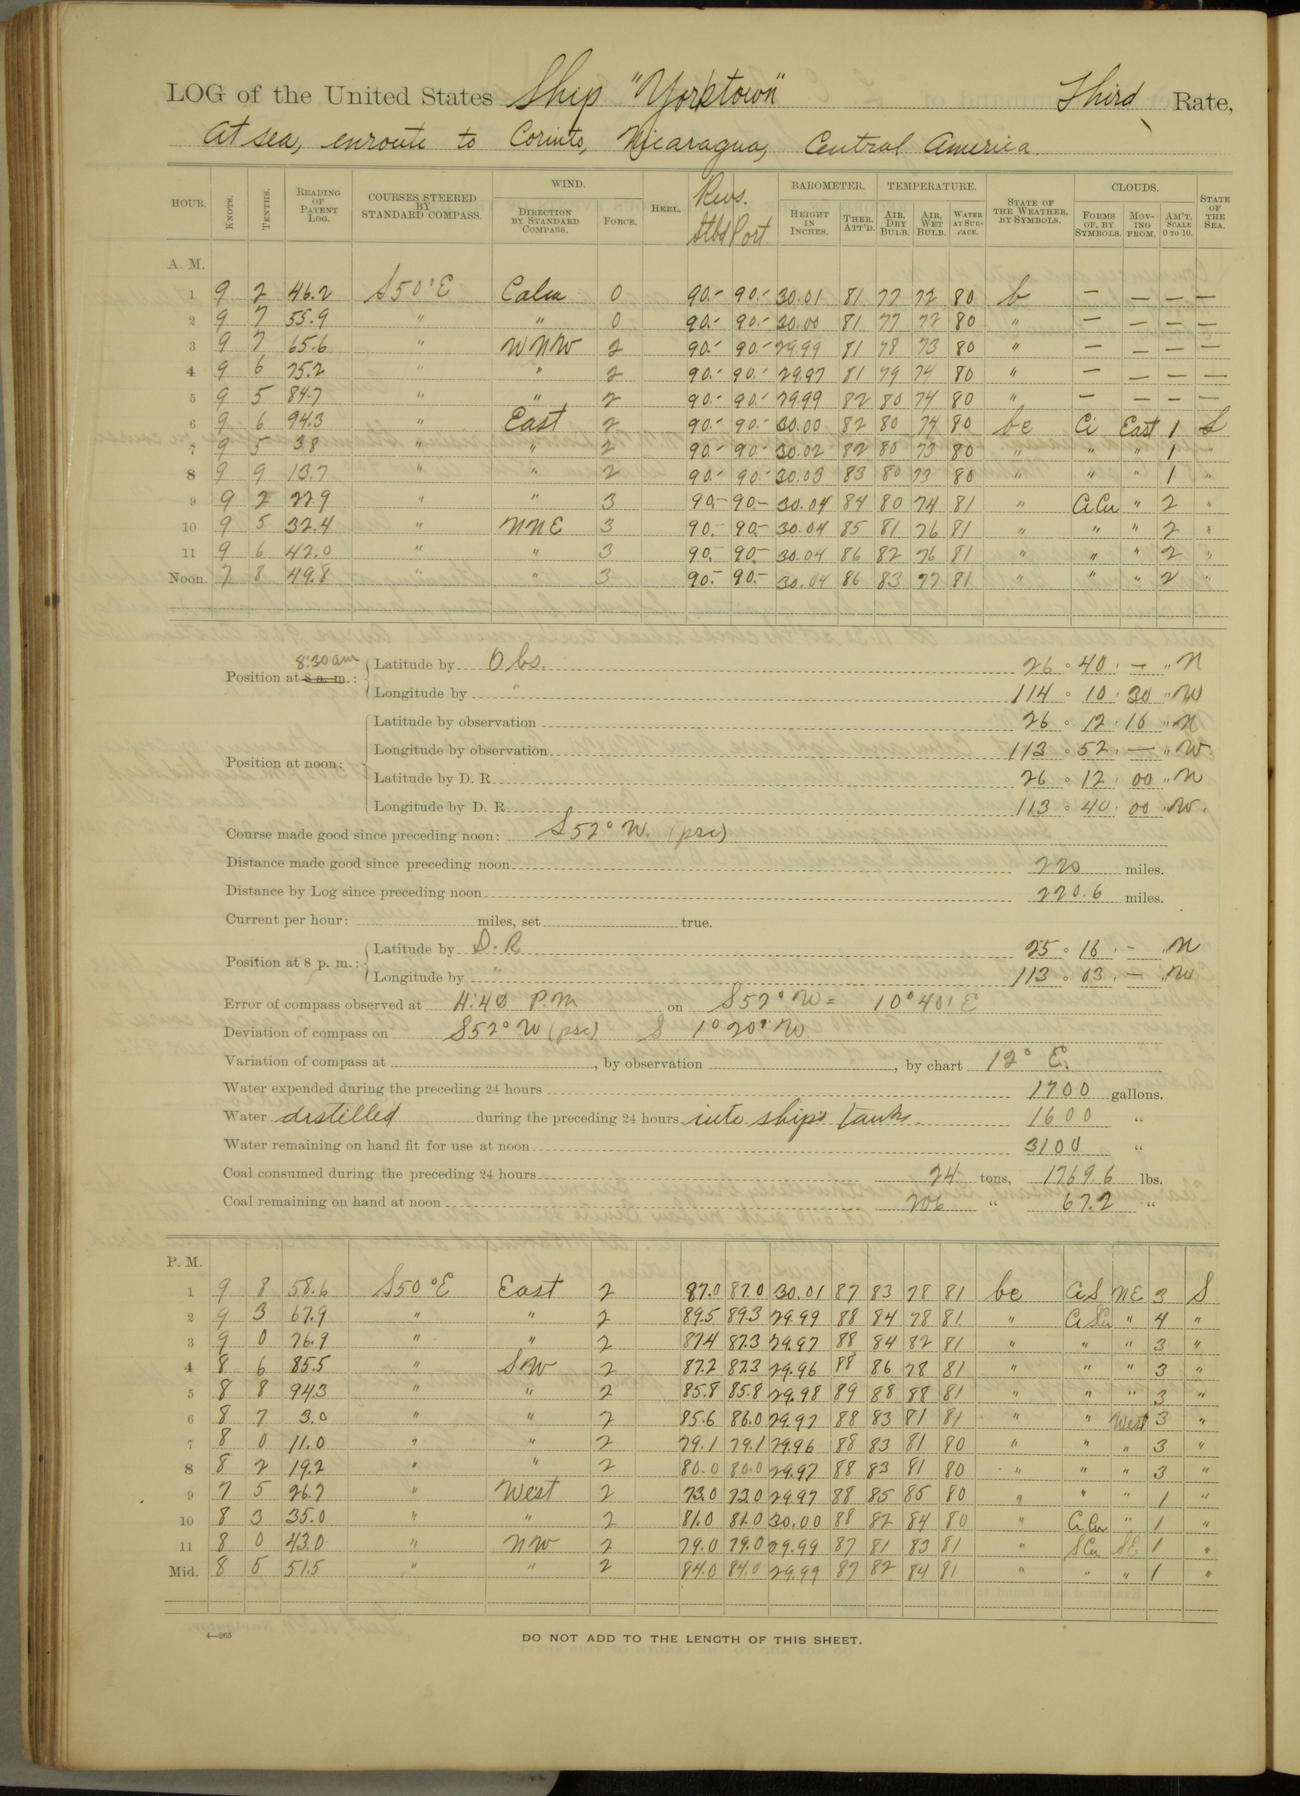 LOG of the United States Ship "Yorktown" Third Rate,
At sea, enroute to Corinto, Nicaragua, Central America.
HOUR. KNOTS. TENTHS. READING OF PATENT LOG. COURSES STEERED BY STANDARD COMPASS. WIND. DIRECTION BY STANDARD COMPASS. FORCE. HEEL. Revs. Stbd Port. BAROMETER. HEIGHT IN INCHES. THER. ATT'D. TEMPERATURE. AIR, DRY BULB. AIR, WET BULB. WATER AT SURFACE. STATE OF THE WEATHER, BY SYMBOLS. CLOUDS. FORMS OF, BY SYMBOLS. MOVING FROM. AM'T. SCALE 0 TO 10. STATE OF THE SEA.
A. M.
1 9 2 46.2 S50°E Calm 0 90.- 90.- 30.01 81 77 72 80 b — — — —
2 9 7 55.9 " " 0 90.- 90.- 30.00 81 77 72 80 " — — — —
3 9 7 65.6 " WNW 2 90.- 90.- 29.99 81 78 73 80 " — — — —
4 9 6 75.2 " " 2 90.- 90.- 29.97 81 79 74 80 " — — — —
5 9 5 84.7 " " 2 90.- 90.- 29.99 82 80 74 80 " — — — —
6 9 6 94.3 " East 2 90.- 90.- 30.00 82 80 74 80 bc Ci East 1 S
7 9 5 3.8 " " 2 90.- 90.- 30.02 82 80 73 80 " " " 1 "
8 9 9 13.7 " " 2 90.- 90.- 30.03 83 80 73 80 " " " 1 "
9 9 2 22.9 " " 3 90.- 90.- 30.04 84 80 74 81 " Ci Cu " 2 "
10 9 5 32.4 " NNE 3 90.- 90.- 30.04 85 81 76 81 " " " 2 "
11 9 6 42.0 " " 3 90.- 90.- 30.04 86 82 76 81 " " " 2 "
Noon. 7 8 49.8 " " 3 90.- 90.- 30.04 86 83 77 81 " " " 2 "
Position at 8:30 am 8 a. m.: Latitude by Obs. 26 ° 40 ' — " N
Longitude by " 114 ° 10 ' 30 " W
Position at noon: Latitude by observation 26 ° 12 ' 16 " N
Longitude by observation 113 ° 52 ' — " W
Latitude by D. R. 26 ° 12 ' 00 " N
Longitude by D. R. 113 ° 40 ' 00 " W.
Course made good since preceding noon: S52° W. (psc)
Distance made good since preceding noon 220 miles.
Distance by Log since preceding noon 220.6 miles.
Current per hour: miles, set true.
Position at 8 p. m.: Latitude by D. R. 25 ° 16 ' — " N
Longitude by " 113 ° 03 ' — " W
Error of compass observed at 4:40 P.M on S52° W = 10° 40' E
Deviation of compass on S52° W (psc) 1° 20' W
Variation of compass at , by observation , by chart 12° E.
Water expended during the preceding 24 hours 1700 gallons.
Water distilled during the preceding 24 hours into ship's tanks. 1600 "
Water remaining on hand fit for use at noon 3100 "
Coal consumed during the preceding 24 hours 24 tons, 1769.6 lbs.
Coal remaining on hand at noon 206 " 67.2 "
P. M.
1 9 8 58.6 S50°E East 2 87.0 87.0 30.01 87 83 78 81 bc Ci S NE 3 S
2 9 3 67.9 " " 2 89.5 89.3 29.99 88 84 78 81 " Ci SCu " 4 "
3 9 0 76.9 " " 2 87.4 87.3 29.97 88 84 82 81 " " " 3 "
4 8 6 85.5 " SW 2 87.2 87.3 29.96 88 86 78 81 " " " 3 "
5 8 8 94.3 " " 2 85.8 85.8 29.98 89 88 88 81 " " " 3 "
6 8 7 3.0 " " 2 85.6 86.0 29.97 88 83 81 81 " " West 3 "
7 8 0 11.0 " " 2 79.1 79.1 29.96 88 83 81 80 " " " 3 "
8 8 2 19.2 " " 2 80.0 80.0 29.97 88 83 81 80 " " " 3 "
9 7 5 26.7 " West 2 73.0 73.0 29.97 88 85 85 80 " " " 1 "
10 8 3 35.0 " " 2 81.0 81.0 30.00 88 82 84 80 " Ci Cu " 1 "
11 8 0 43.0 " NW 2 79.0 79.0 29.99 87 81 83 81 " SCu SE 1 "
Mid. 8 5 51.5 " " 2 84.0 84.0 29.99 87 82 84 81 " " " 1 "
4—265
DO NOT ADD TO THE LENGTH OF THIS SHEET.